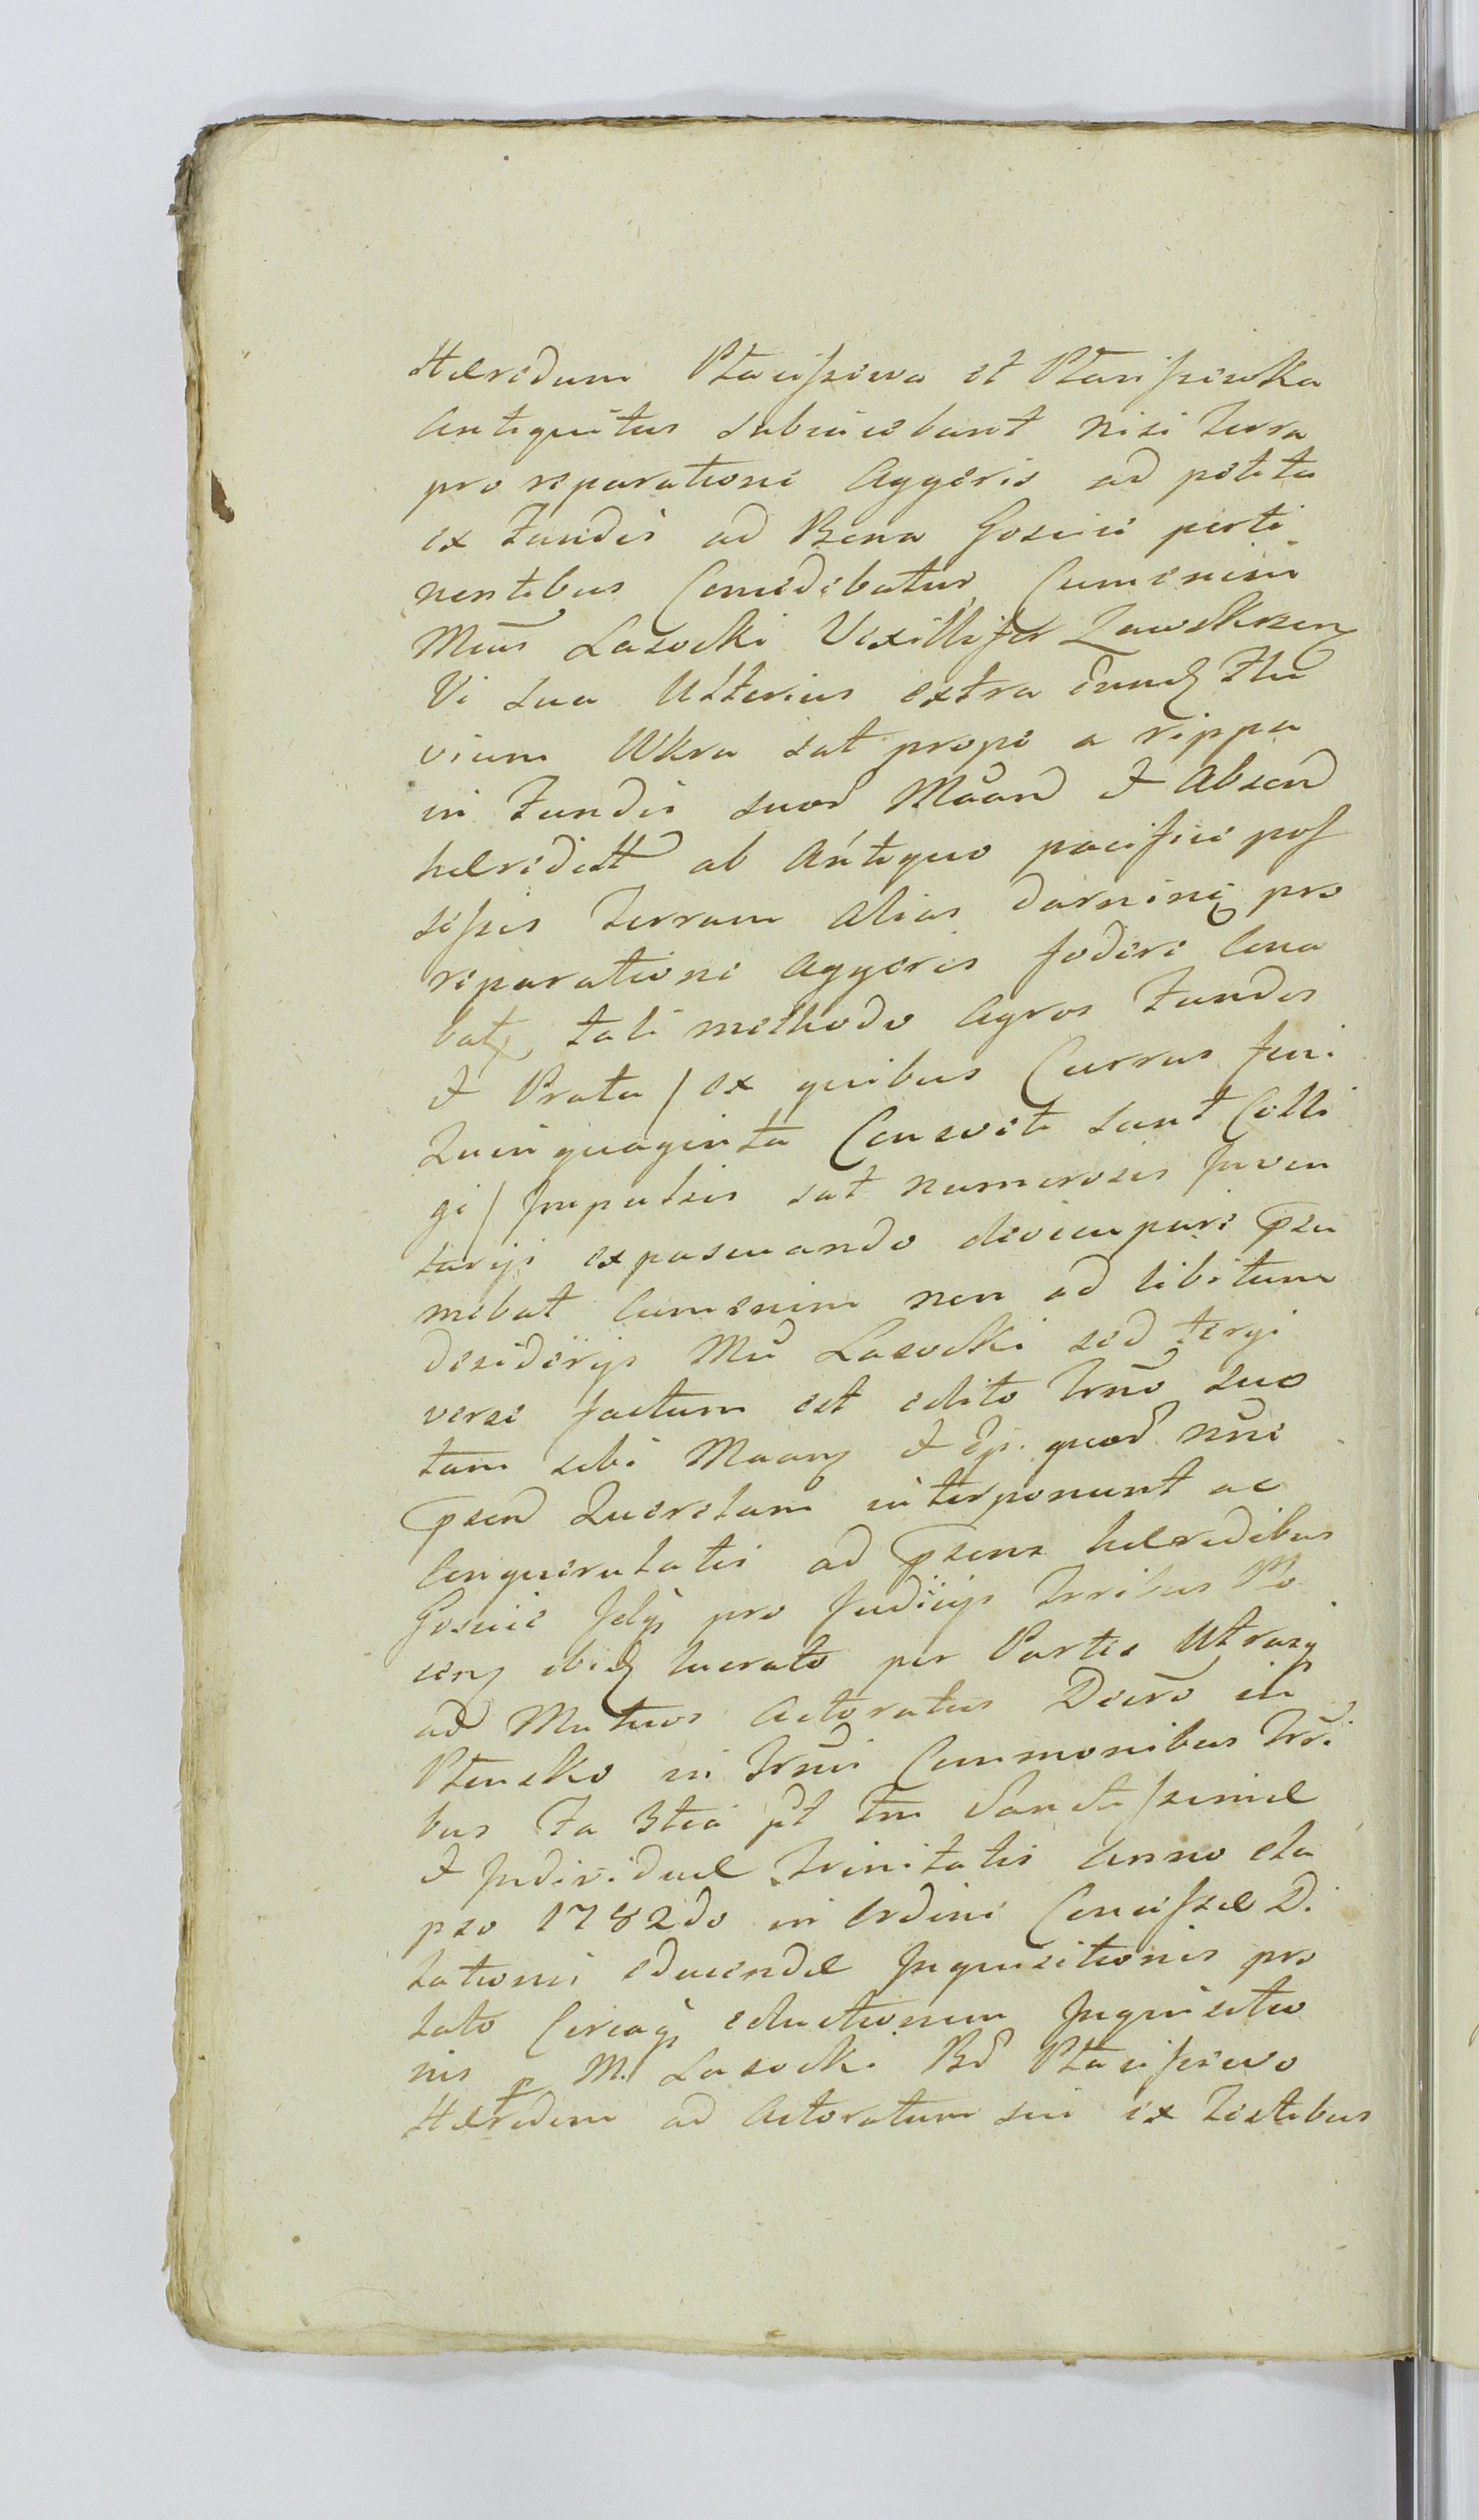 Hæredum Ptaciszewa et Ptaciszewka
Antiquitus subiiciebant nisi terra
pro reparatione Aggeris ad petita
ex Fundis ad Bona Goscice perti
nentibus Concedebatur, Cumenim
Mcus Lasocki Vixillifer Zawskrzen
Vi sua Ulterius extra eund Flu
vium Wkra sat prope a rippa
in Fundis suor Maand et Absend
hæreditt ab Antiquo pacifice pos
sessis terram Alias darninę pro
reparatione Aggeris fodere Cona
bat, tali methodo Agros Fundos
et Prata / ex quibus Currus feni
Quinquaginta Consveti sunt Colli
gi / Impulsis sat numerosis Juven
tarijs expascuando devicupare psu
mebat Cumenim non ad libitum
desiderijs Mci Lasocki sed tergi
verse factum est edito Trnõ suo
tam sibi Maanz et Ep. quod nũc
psend Querelam interponunt ac
Conquerulatis ad psens hæredibus
Goscice pro Judicijs Trribus Plo
cenz ibid lucrato per Partes Utrasq
ad Mutuos Actoratus Decrõ in
Ptocko in Trnis Cummonibus Trri
bus Fa 3tia pt Fm Sanctissimæ
et Individuæ Trinitatis Anno ela
pso 1782do in Ordine Concessæ Di
lationis educendæ Inquisitionis pro
lato Circaq eductionem Inquisitio
nis p M. Lasocki Bd Ptaciszewo
Hæredem ad Actoratum sui ex Testibus